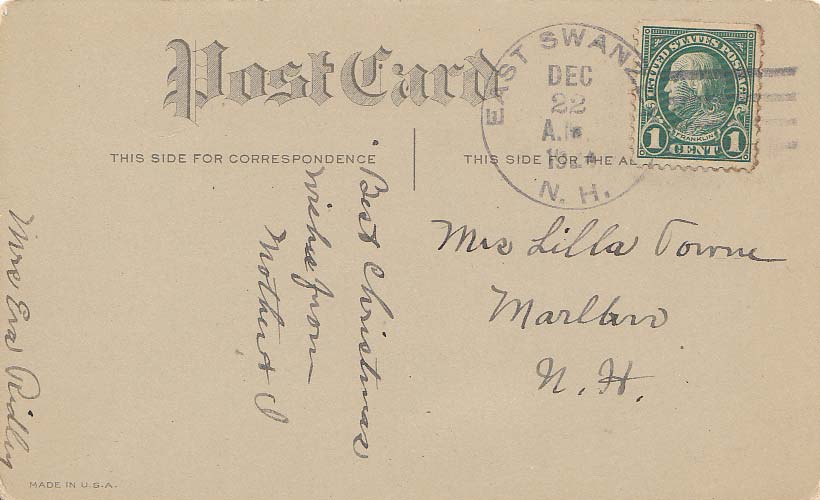 Post Card
THIS SIDE FOR CORRESPONDENCE
THIS SIDE FOR THE AD
EAST SWANZ
DEC
22
A.M.
N. H.
UNITED STATES POSTAGE
FRANKLIN
1 CENT 1
Mrs Lilla Towne
Marlboro
N. H.
Best Christmas
Wishes from
Mother &
Mrs Eva Ridley
MADE IN U.S.A.